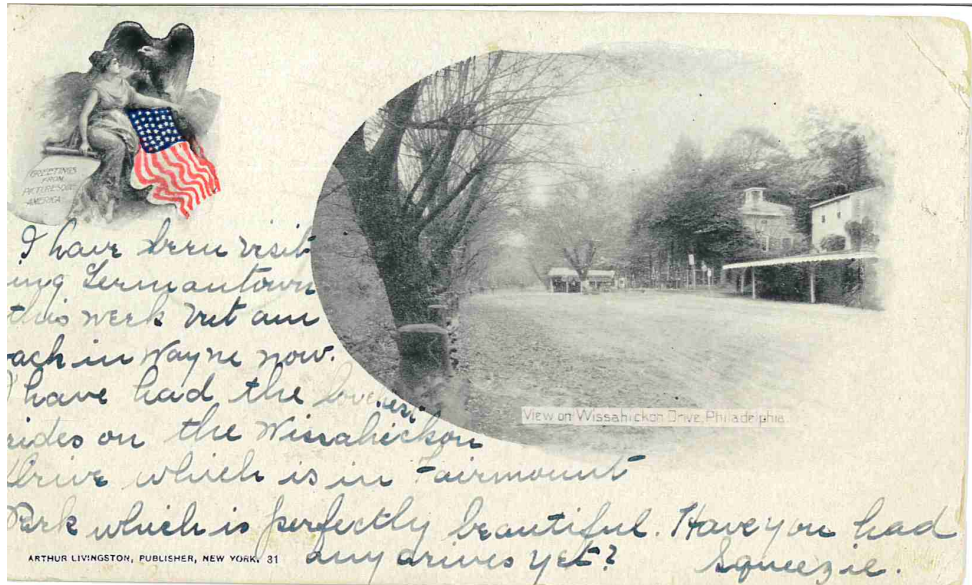 GREETINGS
FROM
PICTURESQUE
AMERICA
View on Wissahickon Drive, Philadelphia.
I have been visit
ing Germantown
this week but am
back in Wayne now.
I have had the loveliest
rides on the Wissahickon
Drive which is in Fairmount
Park which is perfectly beautiful. Have you had
any drives yet? Squeezie.
ARTHUR LIVINGSTON, PUBLISHER, NEW YORK. 31